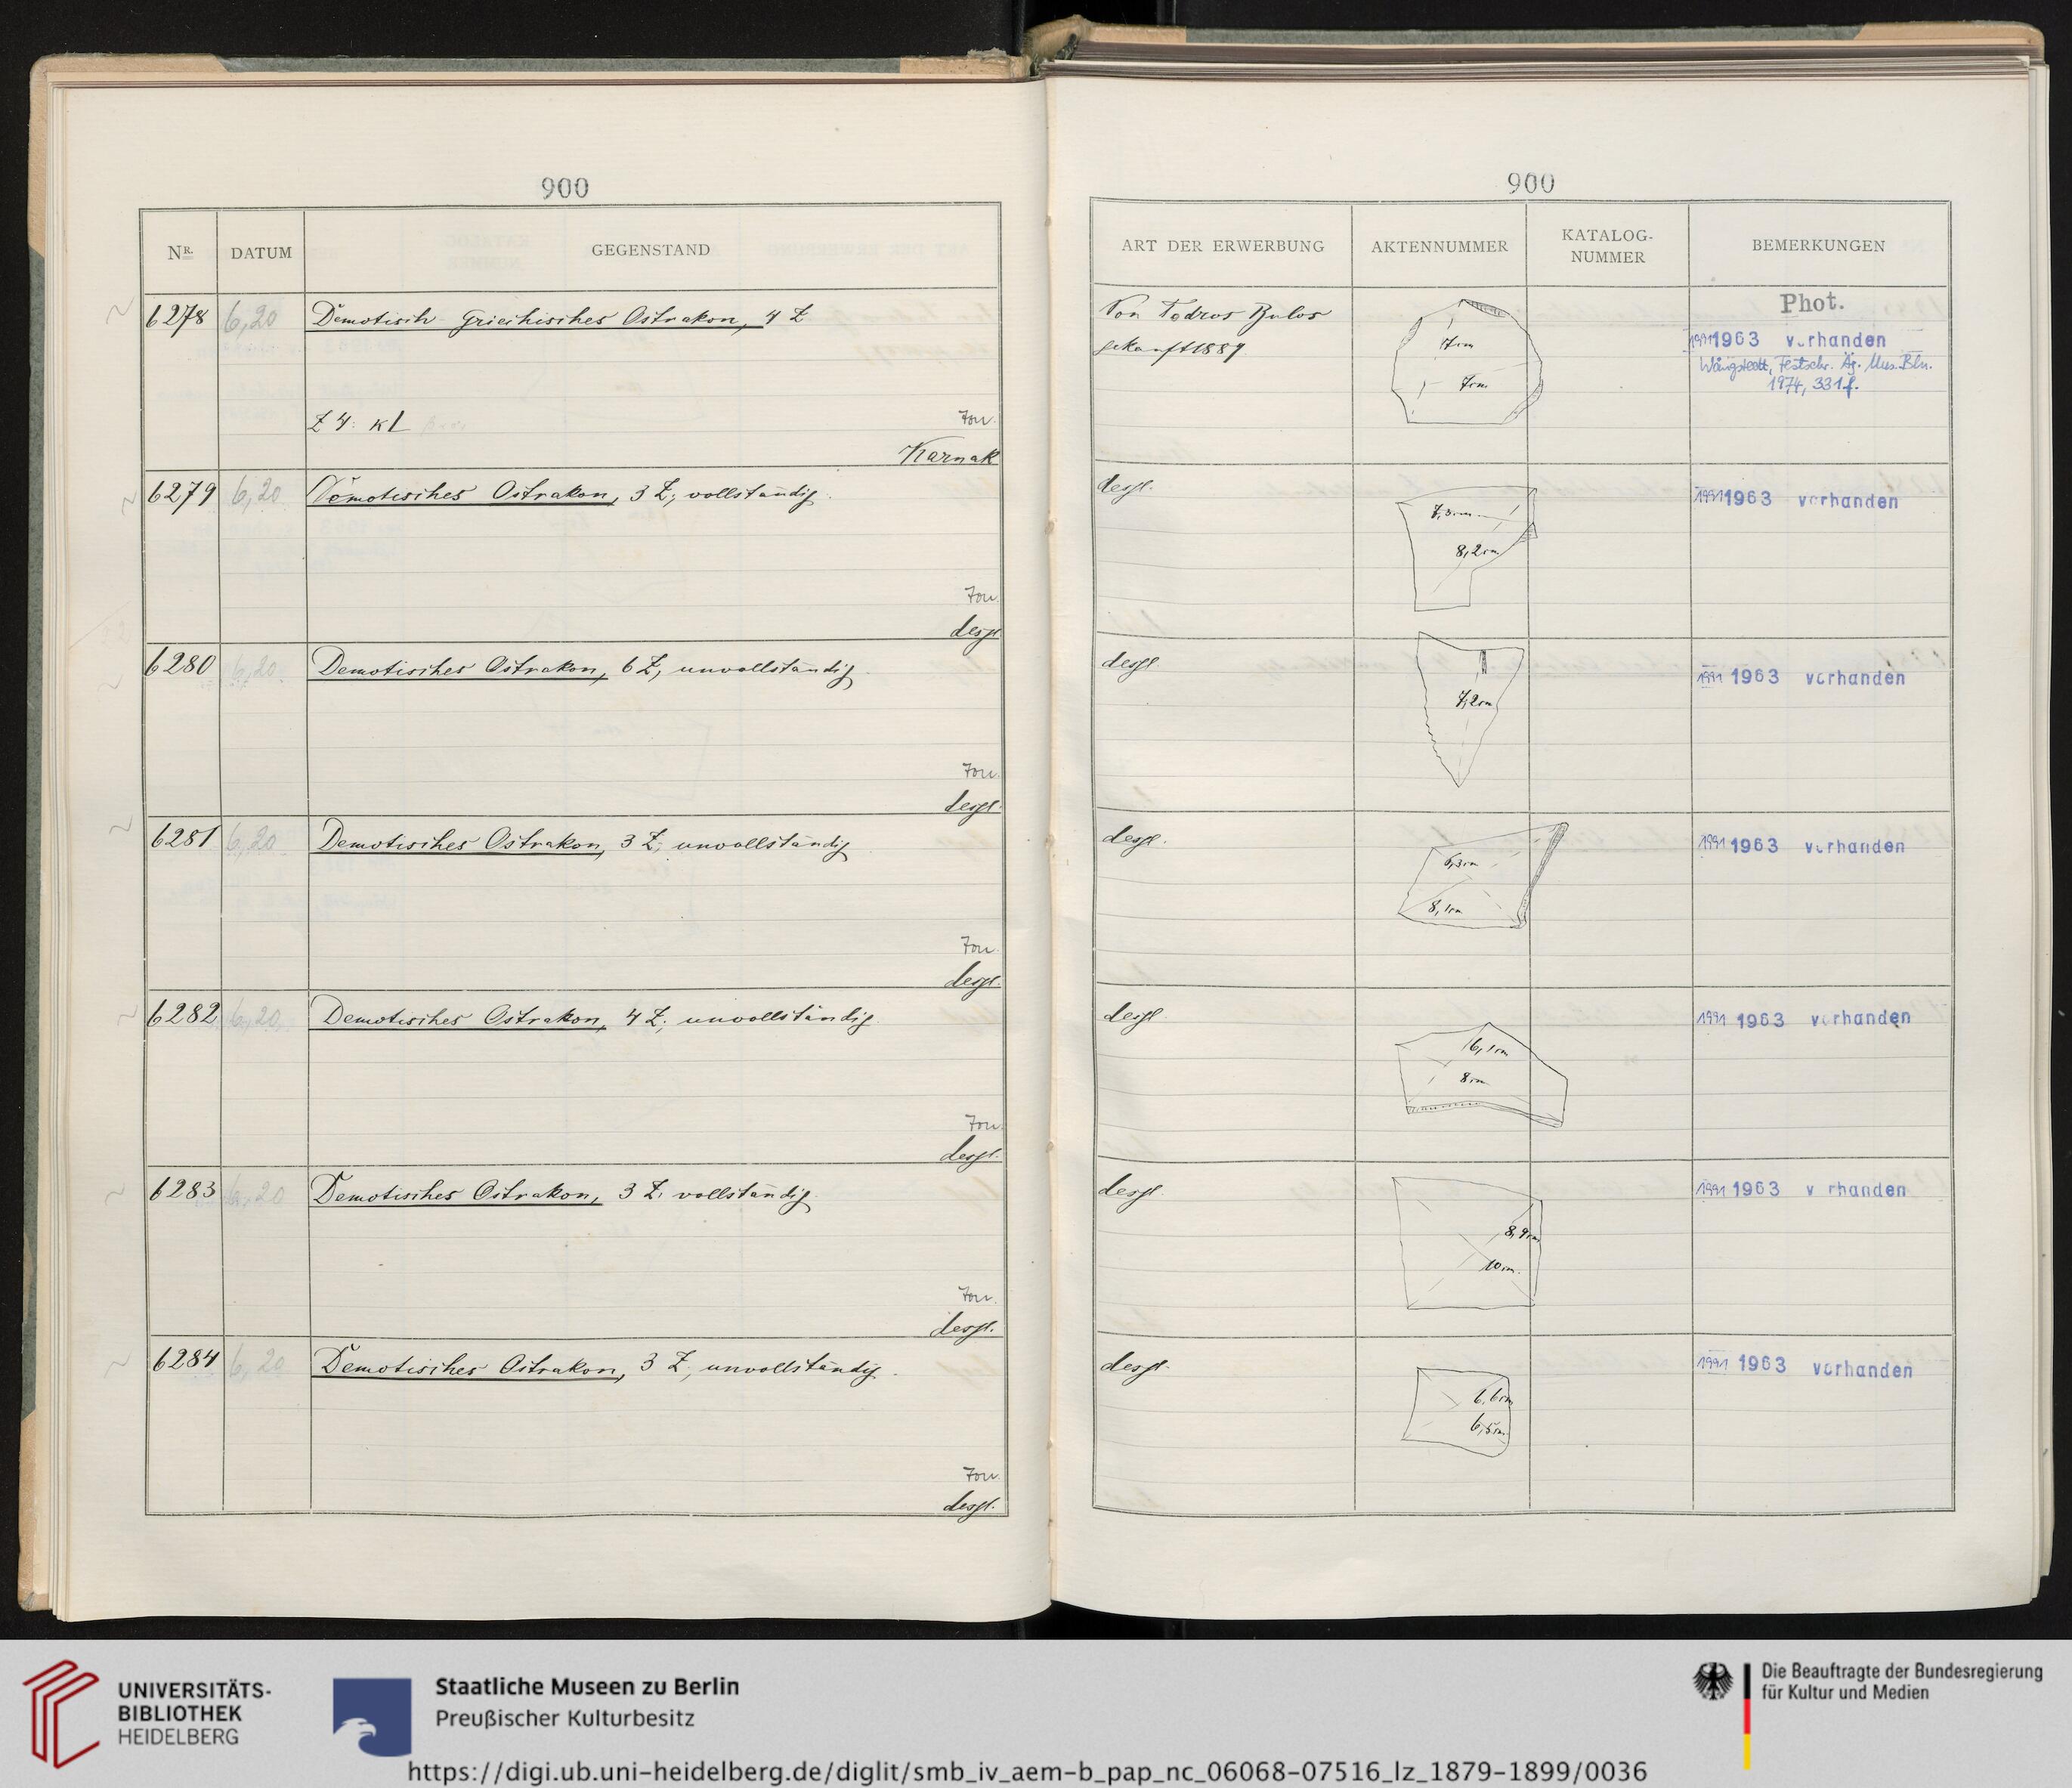 900
NR. DATUM GEGENSTAND
6278 6,20 Demotisch-Griechisches Ostrakon, 4 Z
Z 4: κL
Ton.
Karnak
6279 6,20 Demotisches Ostrakon, 3 Z; vollständig.
Ton.
desgl.
6280 6,20 Demotisches Ostrakon, 6 Z, unvollständig.
Ton.
desgl.
6281 6,20 Demotisches Ostrakon, 3 Z; unvollständig
Ton.
desgl.
6282 6,20 Demotisches Ostrakon, 4 Z; unvollständig.
Ton.
desgl.
6283 6,20 Demotisches Ostrakon, 3 Z; vollständig.
Ton.
desgl.
6284 6,20 Demotisches Ostrakon, 3 Z; unvollständig.
Ton.
desgl.
900
ART DER ERWERBUNG AKTENNUMMER KATALOG-NUMMER BEMERKUNGEN
Von Todros Bulos
gekauft 1889
7cm
Phot.
1991 1963 vorhanden
Wångstedt, Festschr. Äg. Mus. Bln.
1974, 331f.
desgl.
7,3cm
8,2cm
1991 1963 vorhanden
desgl.
7,2cm
1991 1963 vorhanden
desgl.
6,3cm
8,1cm
1991 1963 vorhanden
desgl.
6,1cm
8cm
1991 1963 vorhanden
desgl.
8,9cm
10cm.
1991 1963 v rhanden
desgl.
6,6cm
6,5cm
1991 1963 vorhanden
UNIVERSITÄTS-
BIBLIOTHEK
HEIDELBERG
Staatliche Museen zu Berlin
Preußischer Kulturbesitz
Die Beauftragte der Bundesregierung
für Kultur und Medien
https://digi.ub.uni-heidelberg.de/diglit/smb_iv_aem-b_pap_nc_06068-07516_lz_1879-1899/0036